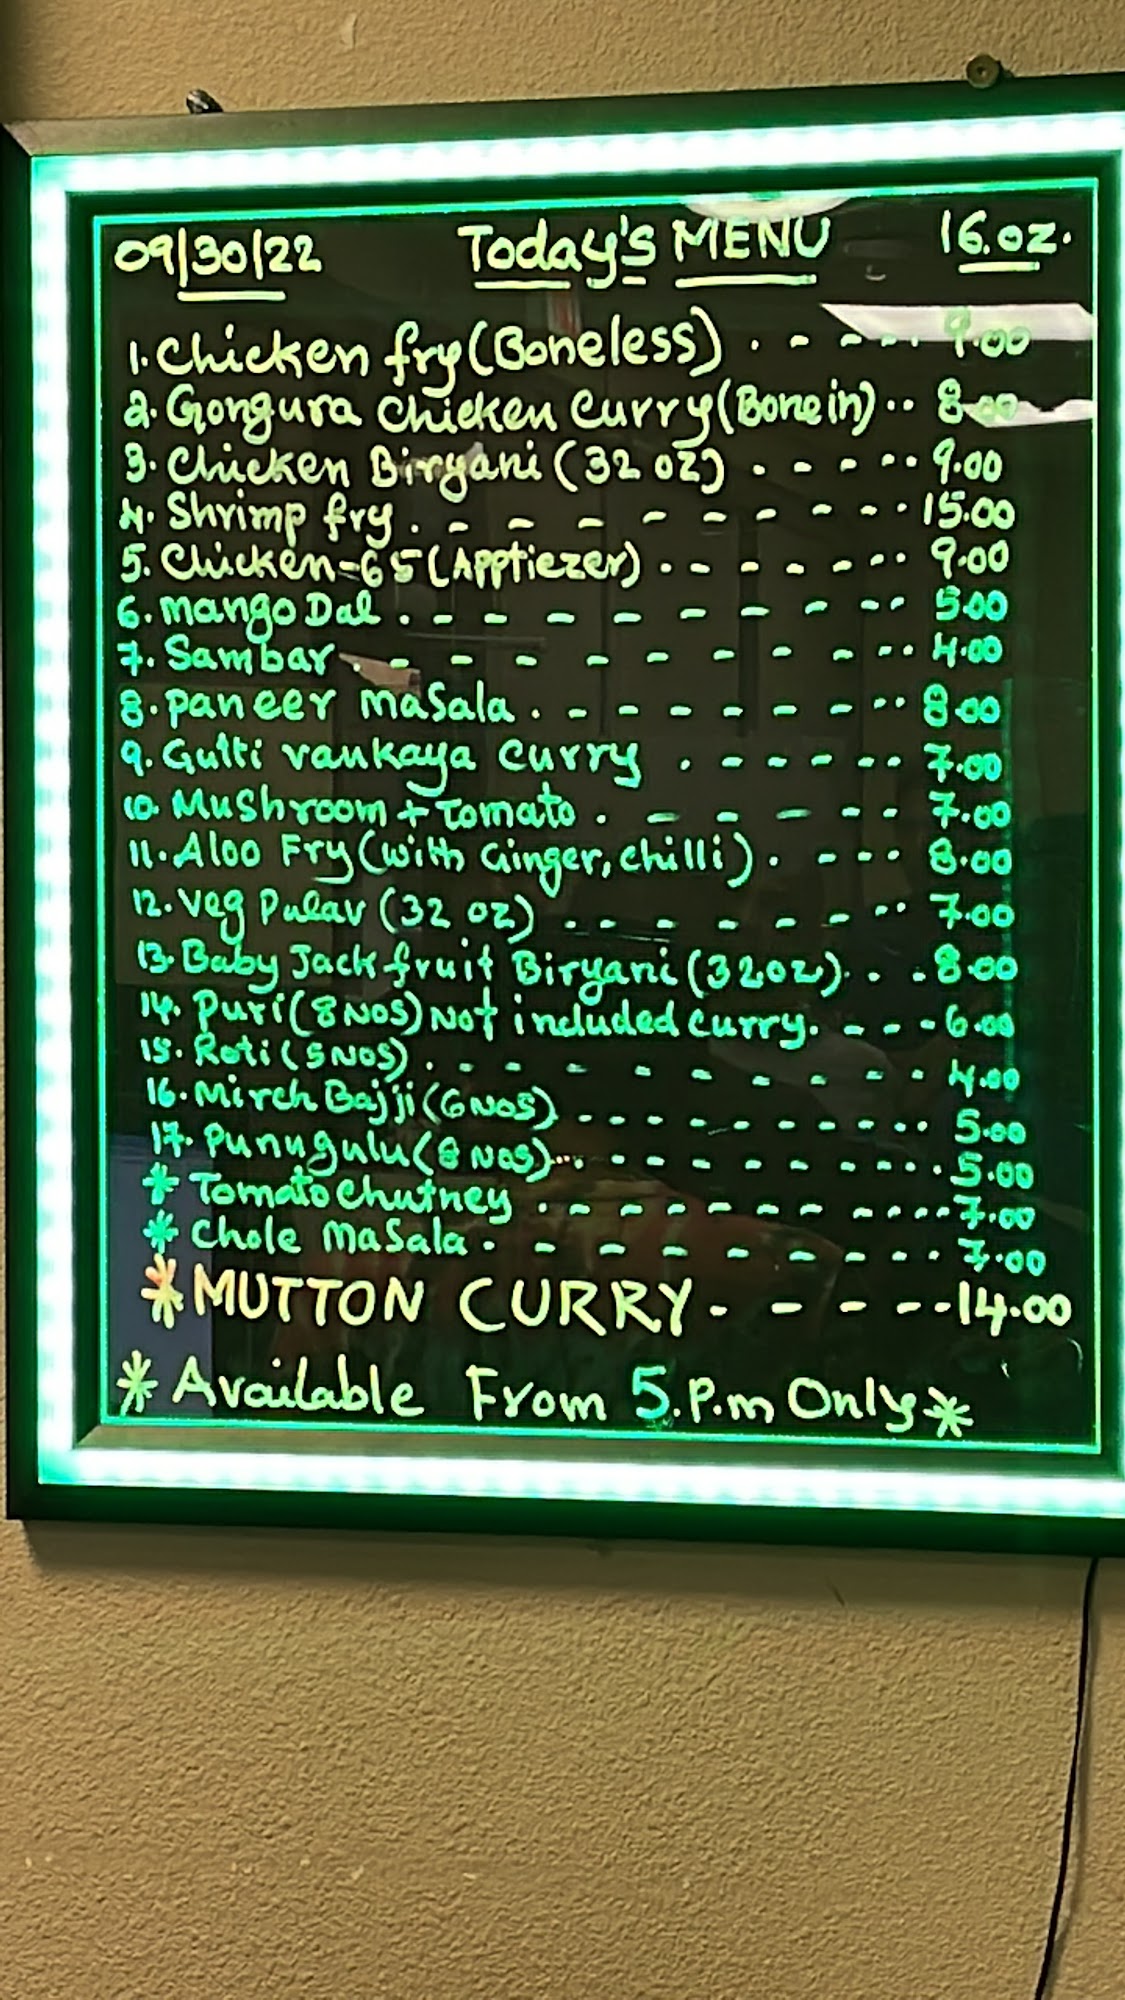 09/30/22 Today's MENU 16.oz.
1. Chicken fry (Boneless) . - - - . 9.00
2. Gongura Chicken Curry (Bone in) .. 8.00
3. Chicken Biryani (32 oz) . - - - .. 9.00
4. Shrimp fry . - - - - - - - .. 15.00
5. Chicken-65 (Apptiezer) . - - - - .. 9.00
6. mango Dal . - - - - - - - .. 5.00
7. Sambar . - - - - - - - - .. 4.00
8. paneer masala . - - - - - - .. 8.00
9. Gutti vankaya curry . - - - .. 7.00
10. Mushroom + Tomato . - - - - - 7.00
11. Aloo Fry (with Ginger, chilli) . - - - 8.00
12. Veg Pulav (32 oz) .. - - - - .. 7.00
13. Baby Jack fruit Biryani (32oz) . . . 8.00
14. Puri (8 NOS) Not included curry. - - - 6.00
15. Roti (5 NOS) . - - - - - - - - 4.00
16. Mirch Bajji (6 NOS) - - - - - - - ... 5.00
17. Punugulu (8 NOS) ... - - - - - - ... 5.00
* Tomato Chutney . - - - - - - - .... 7.00
* Chole Masala . - - - - - - - .. 7.00
* MUTTON CURRY - - - - - - 14.00
* Available From 5.P.m Only *